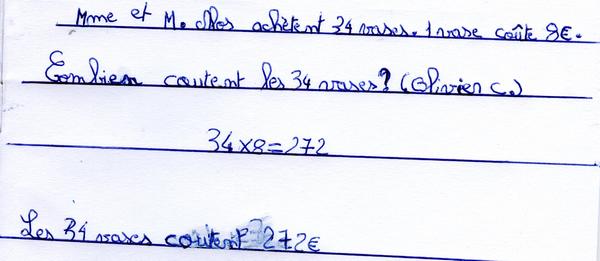 Mme et M. Clos achètent 34 vases. 1 vase coûte 8€.
Combien coutent les 34 vases? (Olivier C.)
34 x 8 = 272
Les 34 vases coutent 272€